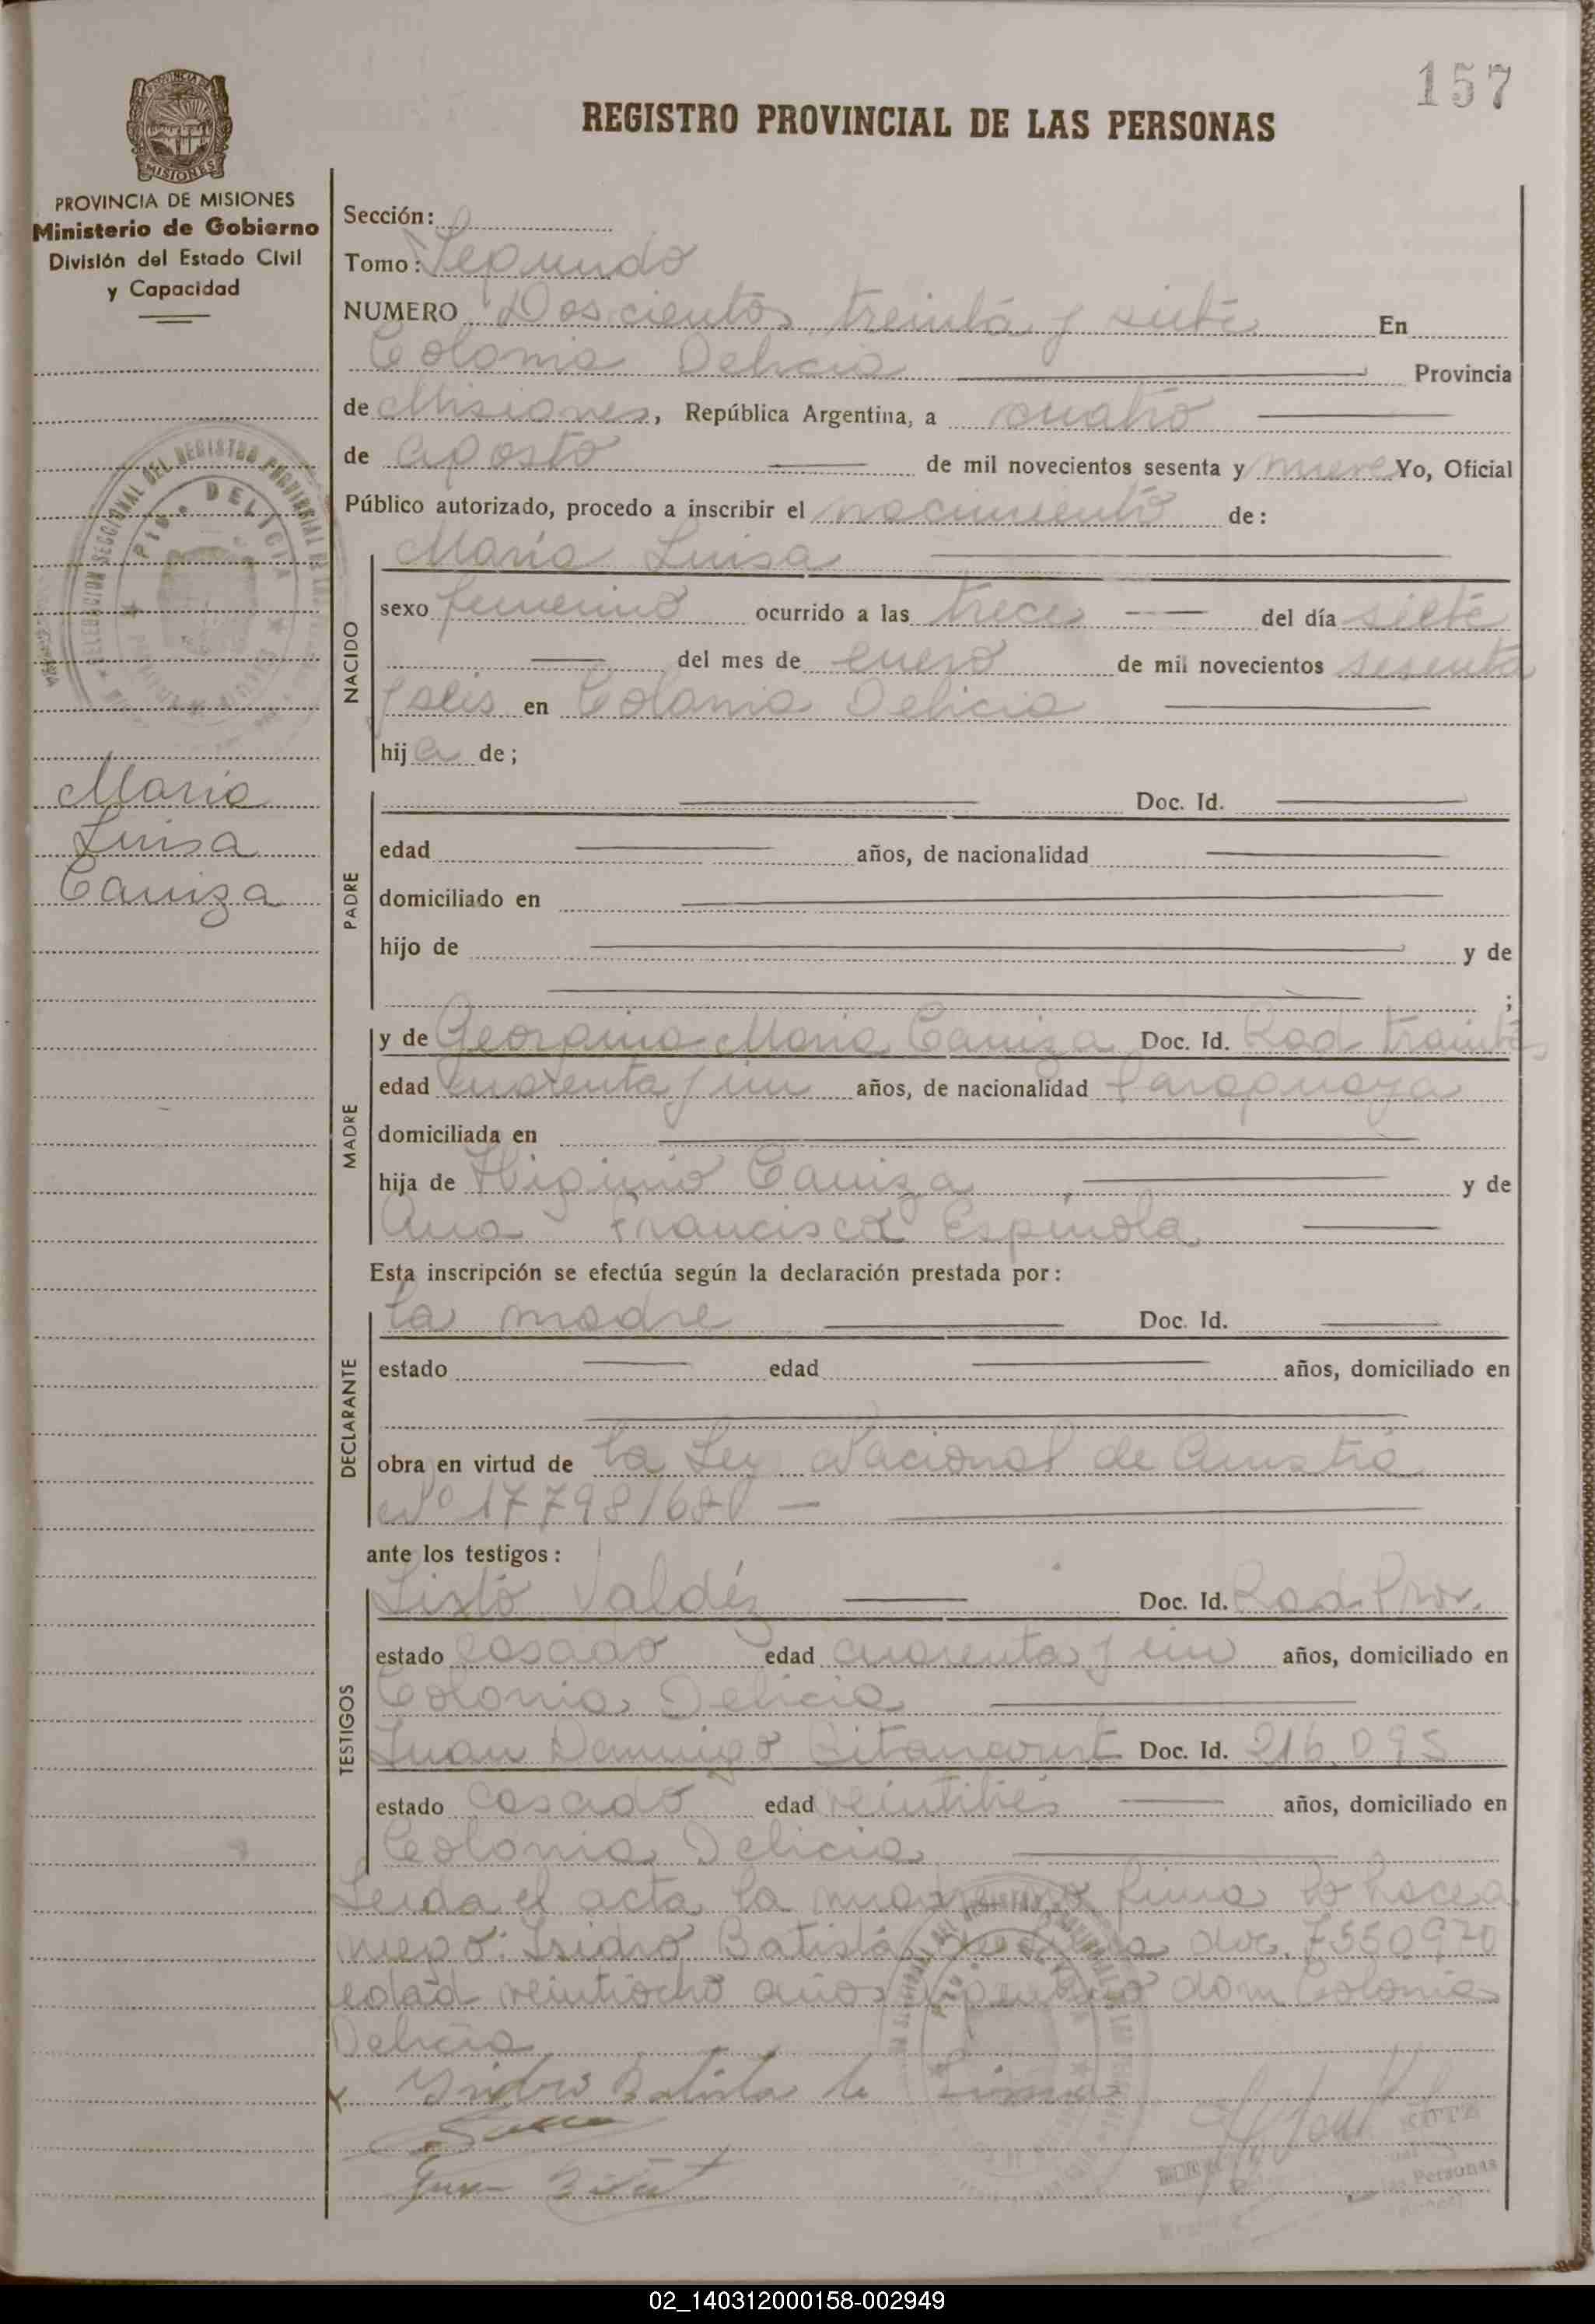 157
REGISTRO PROVINCIAL DE LAS PERSONAS
PROVINCIA DE MISIONES
Ministerio de Gobierno
División del Estado Civil
y Capacidad
Sección:
Tomo: Segundo
NUMERO Doscientos treinta y siete En
Colonia Delicia Provincia
de Misiones, República Argentina, a cuatro
de agosto de mil novecientos sesenta y nueve Yo, Oficial
Público autorizado, procedo a inscribir el nacimiento de:
María Luisa
NACIDO
sexo femenino ocurrido a las trece del día siete
del mes de enero de mil novecientos sesenta
y seis en Colonia Delicia
hija de;
María
Luisa
Caniza
PADRE
Doc. Id.
edad años, de nacionalidad
domiciliado en
hijo de y de
;
MADRE
y de Georgina Maria Caniza Doc. Id. Rad
edad cuarenta y un años, de nacionalidad Paraguaya
domiciliada en
hija de Higinio Caniza y de
Ana Francisca Espinola
Esta inscripción se efectúa según la declaración prestada por:
DECLARANTE
la madre Doc. Id.
estado edad años, domiciliado en
obra en virtud de la Ley Nacional de Amistia
Nº 17798/68
ante los testigos:
TESTIGOS
Sixto Valdéz Doc. Id. Rad. Prov.
estado casado edad cuarenta y un años, domiciliado en
Colonia Delicia
Juan Domingo Bitancourt Doc. Id. 216.095
estado casado edad veintitrés años, domiciliado en
Colonia Delicia
Leida el acta la no firma lo hace a
ruego: Isidro Batista de Lima doc. 7550970
edad veintiocho años argentino dom Colonia
Delicia
Isidro Batista de Lima
Personas
02_140312000158-002949